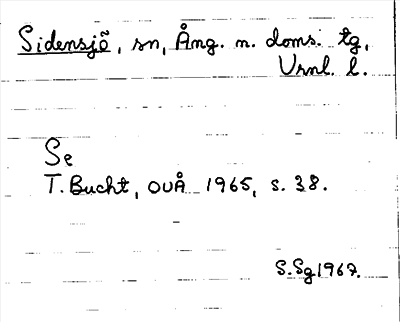 Sidensjö, sn, Ång. n. doms. tg,
Vrnl. l.
Se
T. Bucht, OUÅ 1965, s. 38.
S.Sg 1967.